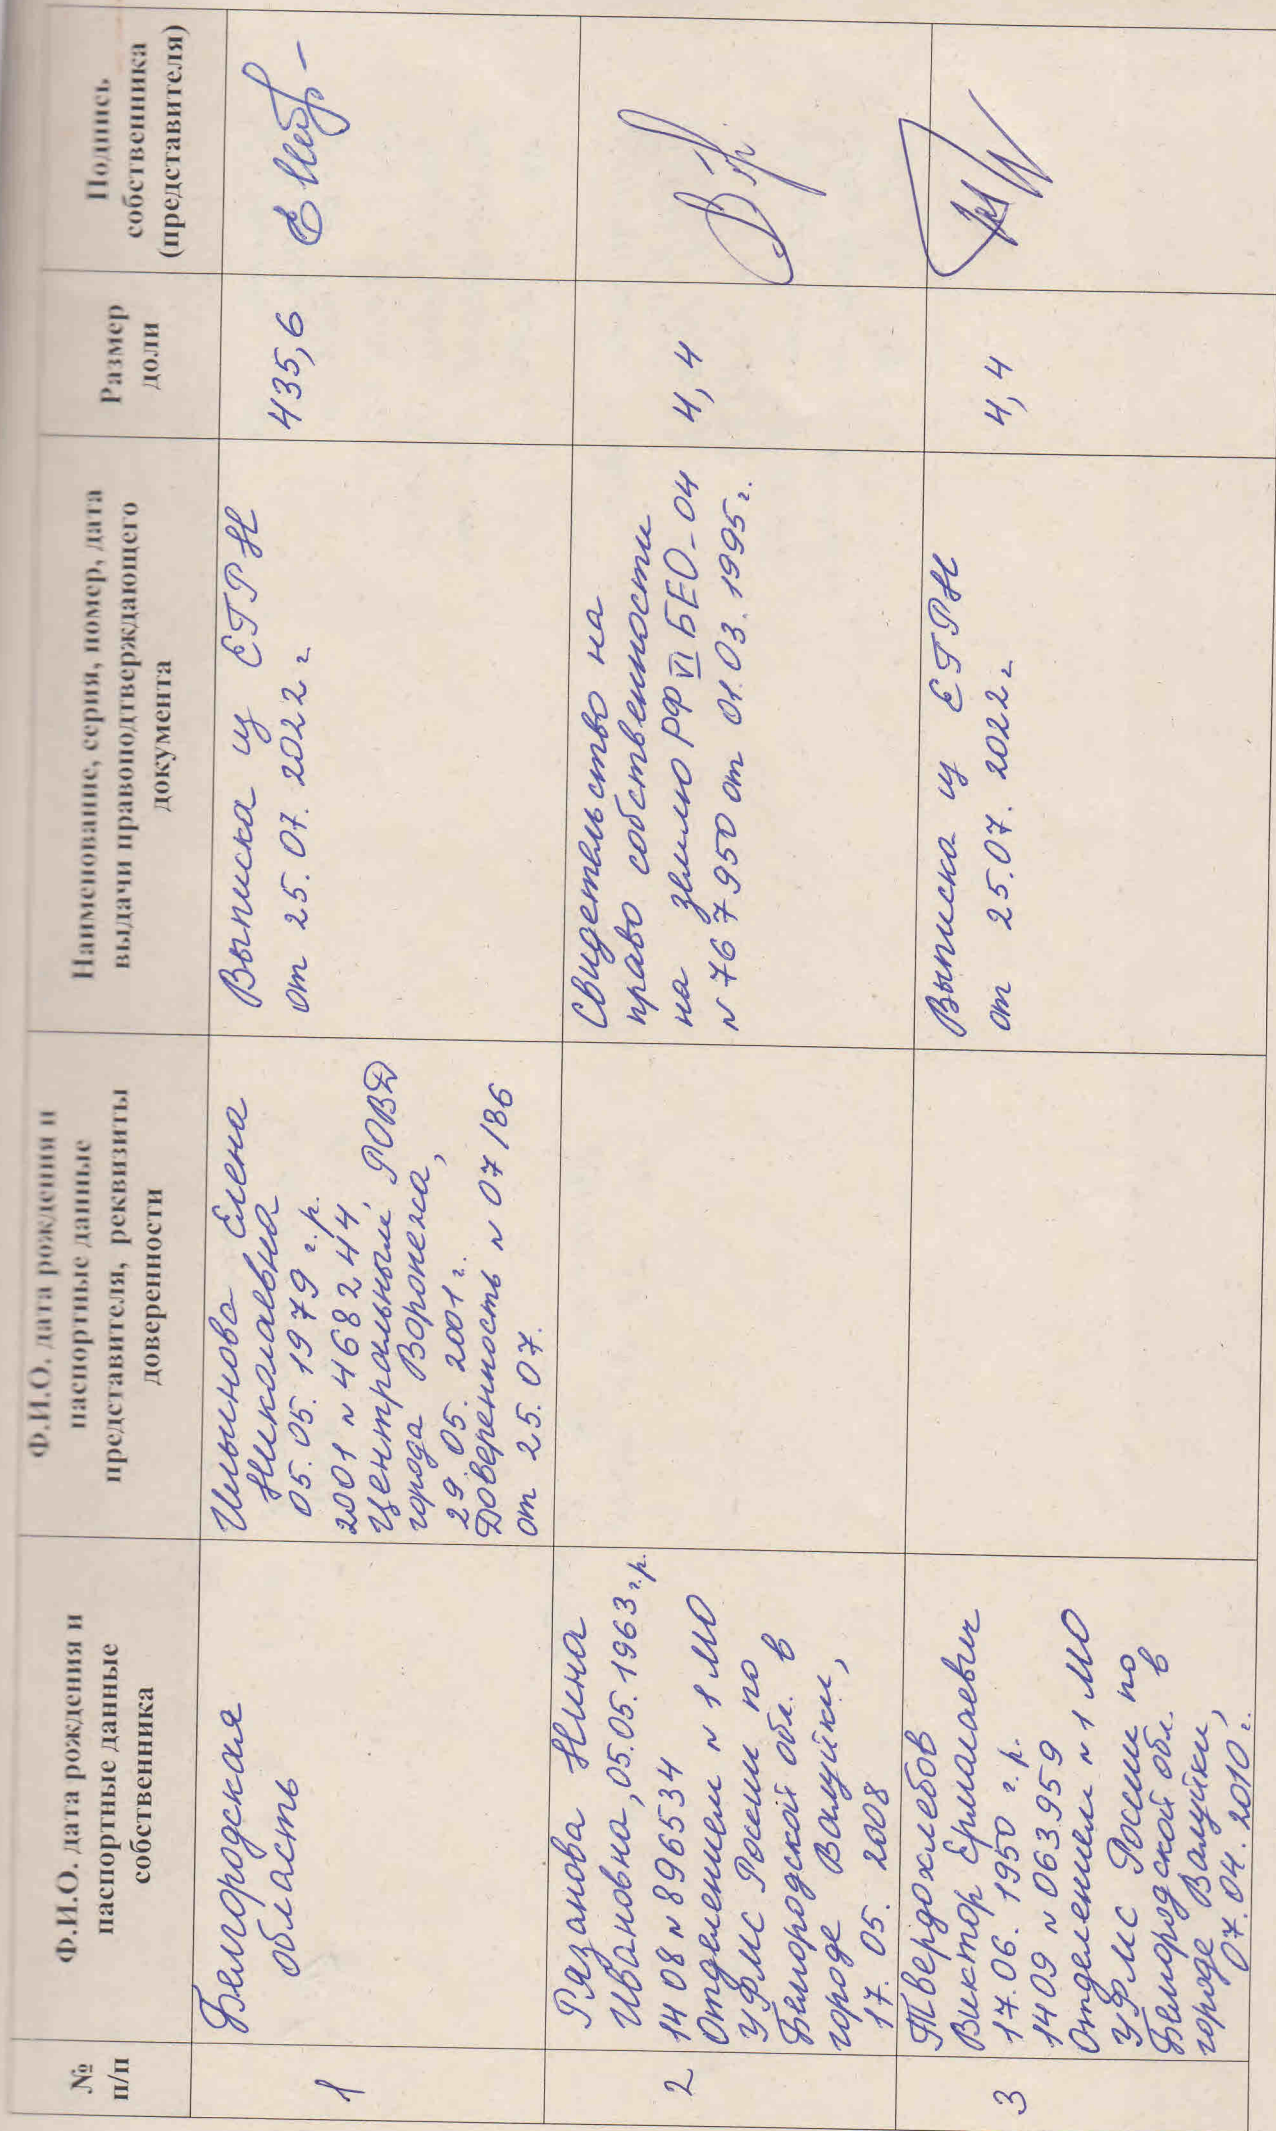 №
п/п
Ф.И.О. дата рождения и
паспортные данные
собственника
Ф.И.О. дата рождения и
паспортные данные
представителя, реквизиты
доверенности
Наименование, серия, номер, дата
выдачи правоподтверждающего
документа
Размер
доли
Подпись
собственника
(представителя)
1
Белгородская
область
Ильинова Елена
Николаевна
05.05.1979 г.р.
2001 N 468244
Центральным РОВД
города Воронежа,
29.05.2001г.
Доверенность N 07/86
от 25.07.
Выписка из ЕГРН
от 25.07.2022 г
435,6
2
Рязанова Нина
Ивановна, 05.05.1963 г.р.
1408 N 896534
Отделением N 1 МО
УФМС России по
Белгородской обл. в
городе Валуйки,
17.05.2008
Свидетельство на
право собственности
на землю РФ VI БЕО-04
N 767950 от 01.03.1995 г.
4,4
3
Твердохлебов
Виктор Ермолаевич
17.06.1950 г.р.
1409 N 063959
Отделением N 1 МО
УФМС России по
Белгородской обл. в
городе Валуйки,
07.04.2010 г.
Выписка из ЕГРН
от 25.07.2022 г
4,4